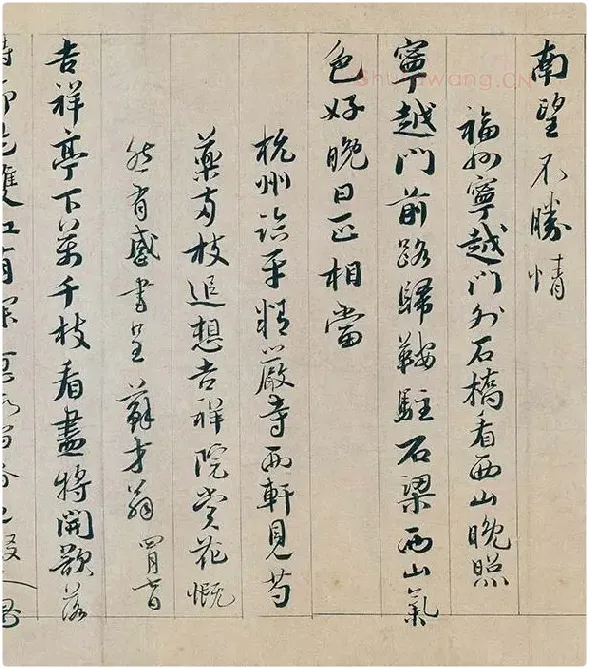 南望不勝情
福州寧越門外石橋看西山晚照
寧越門前路歸鞍駐石梁西山氣
色好晚日正相當
杭州臨平精嚴寺西軒見芍
藥兩枝追想吉祥院賞花慨
然有感書呈蘇才翁 四月七日
吉祥亭下萬千枝看盡將開欲落